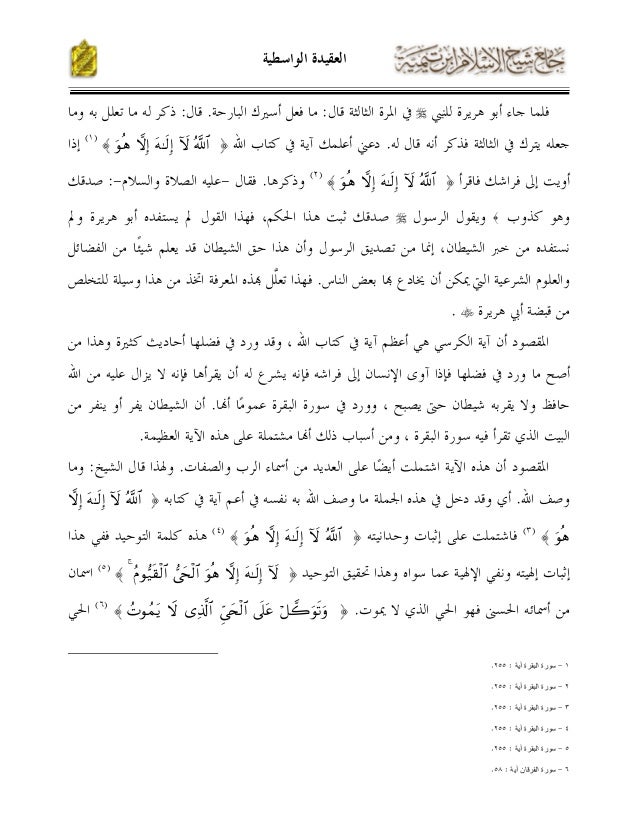 جامع شيخ الإسلام ابن تيمية
العقيدة الواسطية
فلما جاء أبو هريرة للنبي ﷺ في المرة الثالثة قال: ما فعل أسيرك البارحة. قال: ذكر له ما تعلل به وما
جعله يترك في الثالثة فذكر أنه قال له. دعني أعلمك آية في كتاب الله ﴿ ٱللَّهُ لَآ إِلَـٰهَ إِلَّا هُوَ ﴾ (١) إذا
أويت إلى فراشك فاقرأ ﴿ ٱللَّهُ لَآ إِلَـٰهَ إِلَّا هُوَ ﴾ (٢) وذكرها. فقال -عليه الصلاة والسلام-: صدقك
وهو كذوب ﴾ ويقول الرسول ﷺ صدقك ثبت هذا الحكم، فهذا القول لم يستفده أبو هريرة ولم
نستفده من خبر الشيطان، إنما من تصديق الرسول وأن هذا حق الشيطان قد يعلم شيئًا من الفضائل
والعلوم الشرعية التي يمكن أن يخادع بها بعض الناس. فهذا تعلَّل بهذه المعرفة اتخذ من هذا وسيلة للتخلص
من قبضة أبي هريرة ﷺ .
المقصود أن آية الكرسي هي أعظم آية في كتاب الله ، وقد ورد في فضلها أحاديث كثيرة وهذا من
أصح ما ورد في فضلها فإذا آوى الإنسان إلى فراشه فإنه يشرع له أن يقرأها فإنه لا يزال عليه من الله
حافظ ولا يقربه شيطان حتى يصبح ، وورد في سورة البقرة عمومًا أنها. أن الشيطان يفر أو ينفر من
البيت الذي تقرأ فيه سورة البقرة ، ومن أسباب ذلك أنها مشتملة على هذه الآية العظيمة.
المقصود أن هذه الآية اشتملت أيضًا على العديد من أسماء الرب والصفات. ولهذا قال الشيخ: وما
وصف الله. أي وقد دخل في هذه الجملة ما وصف الله به نفسه في أعم آية في كتابه ﴿ ٱللَّهُ لَآ إِلَـٰهَ إِلَّا
هُوَ ﴾ (٣) فاشتملت على إثبات وحدانيته ﴿ ٱللَّهُ لَآ إِلَـٰهَ إِلَّا هُوَ ﴾ (٤) هذه كلمة التوحيد ففي هذا
إثبات إلهيته ونفي الإلهية عما سواه وهذا تحقيق التوحيد ﴿ لَآ إِلَـٰهَ إِلَّا هُوَ ٱلْحَىُّ ٱلْقَيُّومُ ۚ ﴾ (٥) اسمان
من أسمائه الحسنى فهو الحي الذي لا يموت. ﴿ وَتَوَكَّلْ عَلَى ٱلْحَىِّ ٱلَّذِى لَا يَمُوتُ ﴾ (٦) الحي
١ - سورة البقرة آية : ٢٥٥.
٢ - سورة البقرة آية : ٢٥٥.
٣ - سورة البقرة آية : ٢٥٥.
٤ - سورة البقرة آية : ٢٥٥.
٥ - سورة البقرة آية : ٢٥٥.
٦ - سورة الفرقان آية : ٥٨.